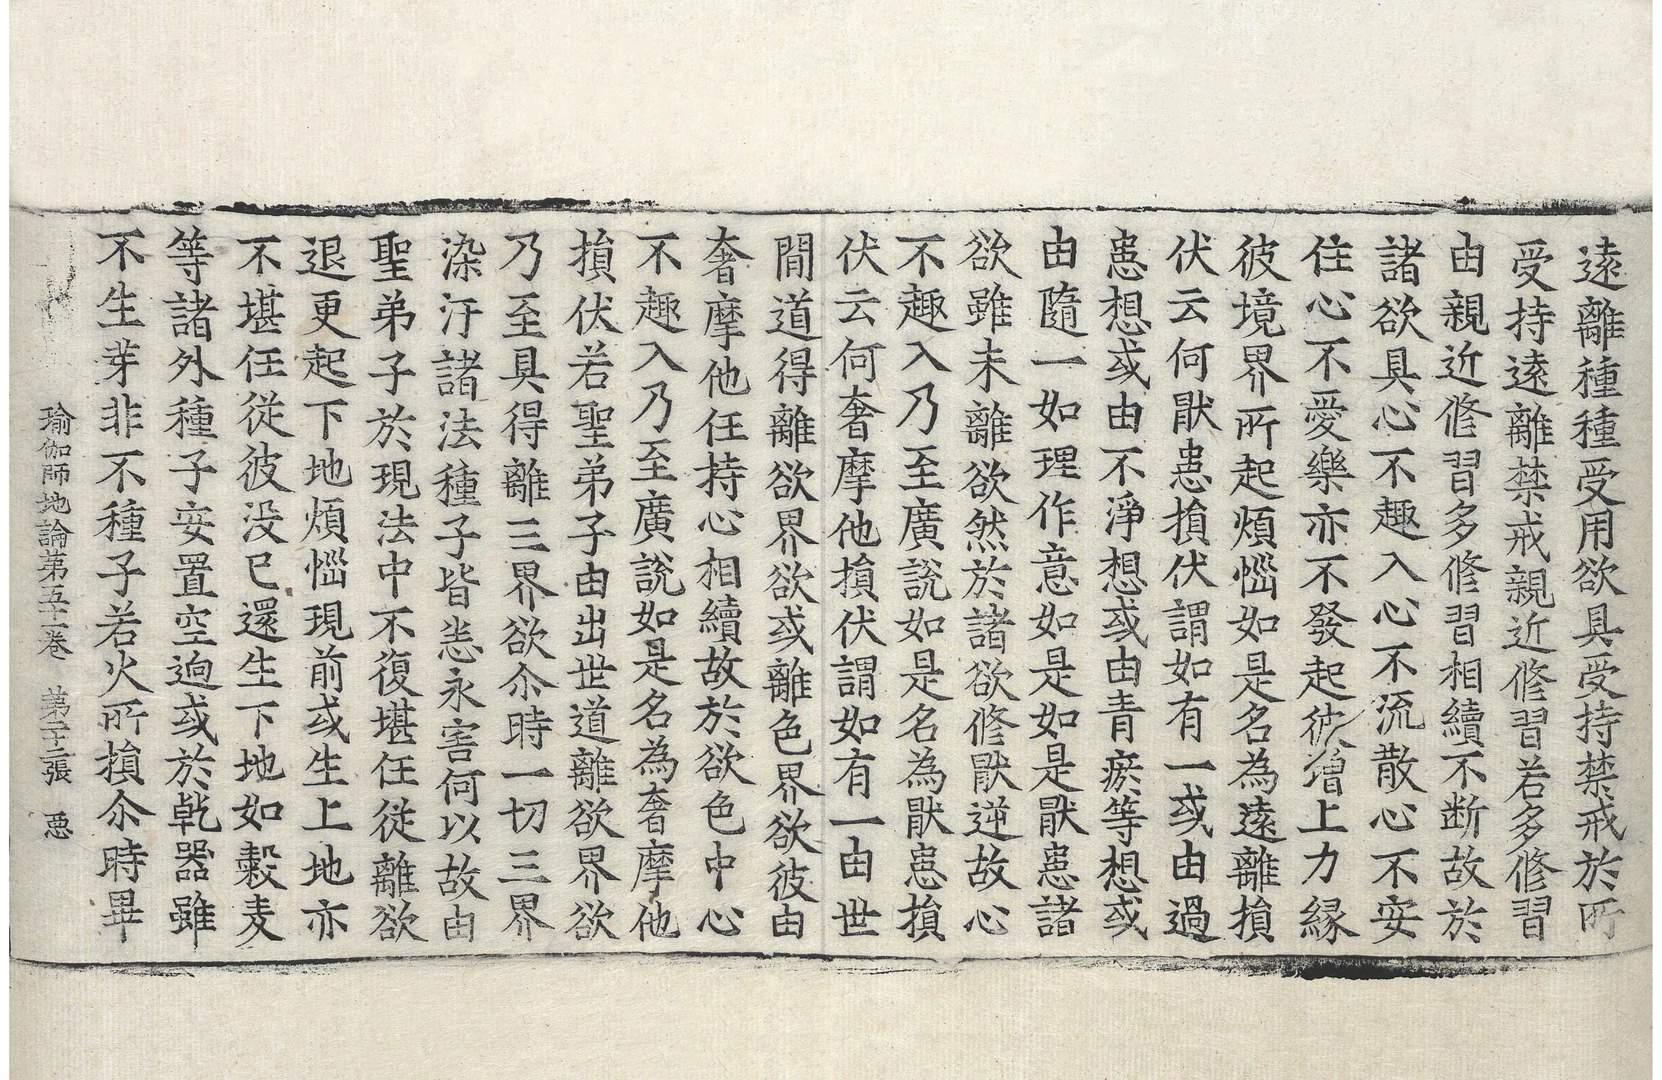 遠離種種受用欲具受持禁戒於所
受持遠離禁戒親近修習若多修習
由親近修習多修習相續不断故於
諸欲具心不趣入心不流散心不安
住心不愛樂亦不發起彼增上力縁
彼境界所起煩惱如是名為遠離損
伏云何猒患損伏謂如有一或由過
患想或由不淨想或由青瘀等想或
由隨一如理作意如是如是猒患諸
欲雖未離欲然於諸欲修猒逆故心
不趣入乃至廣說如是名為猒患損
伏云何奢摩他損伏謂如有一由世
間道得離欲界欲或離色界欲彼由
奢摩他任持心相續故於欲色中心
不趣入乃至廣說如是名為奢摩他
損伏若聖弟子由出世道離欲界欲
乃至具得離三界欲尒時一切三界
染汙諸法種子皆悉永害何以故由
聖弟子於現法中不復堪任從離欲
退更起下地煩惱現前或生上地亦
不堪任從彼没已還生下地如穀麦
等諸外種子安置空逈或於乹器雖
不生芽非不種子若火所損尒時畢
瑜伽師地論第五十一卷　第二十二張　惡